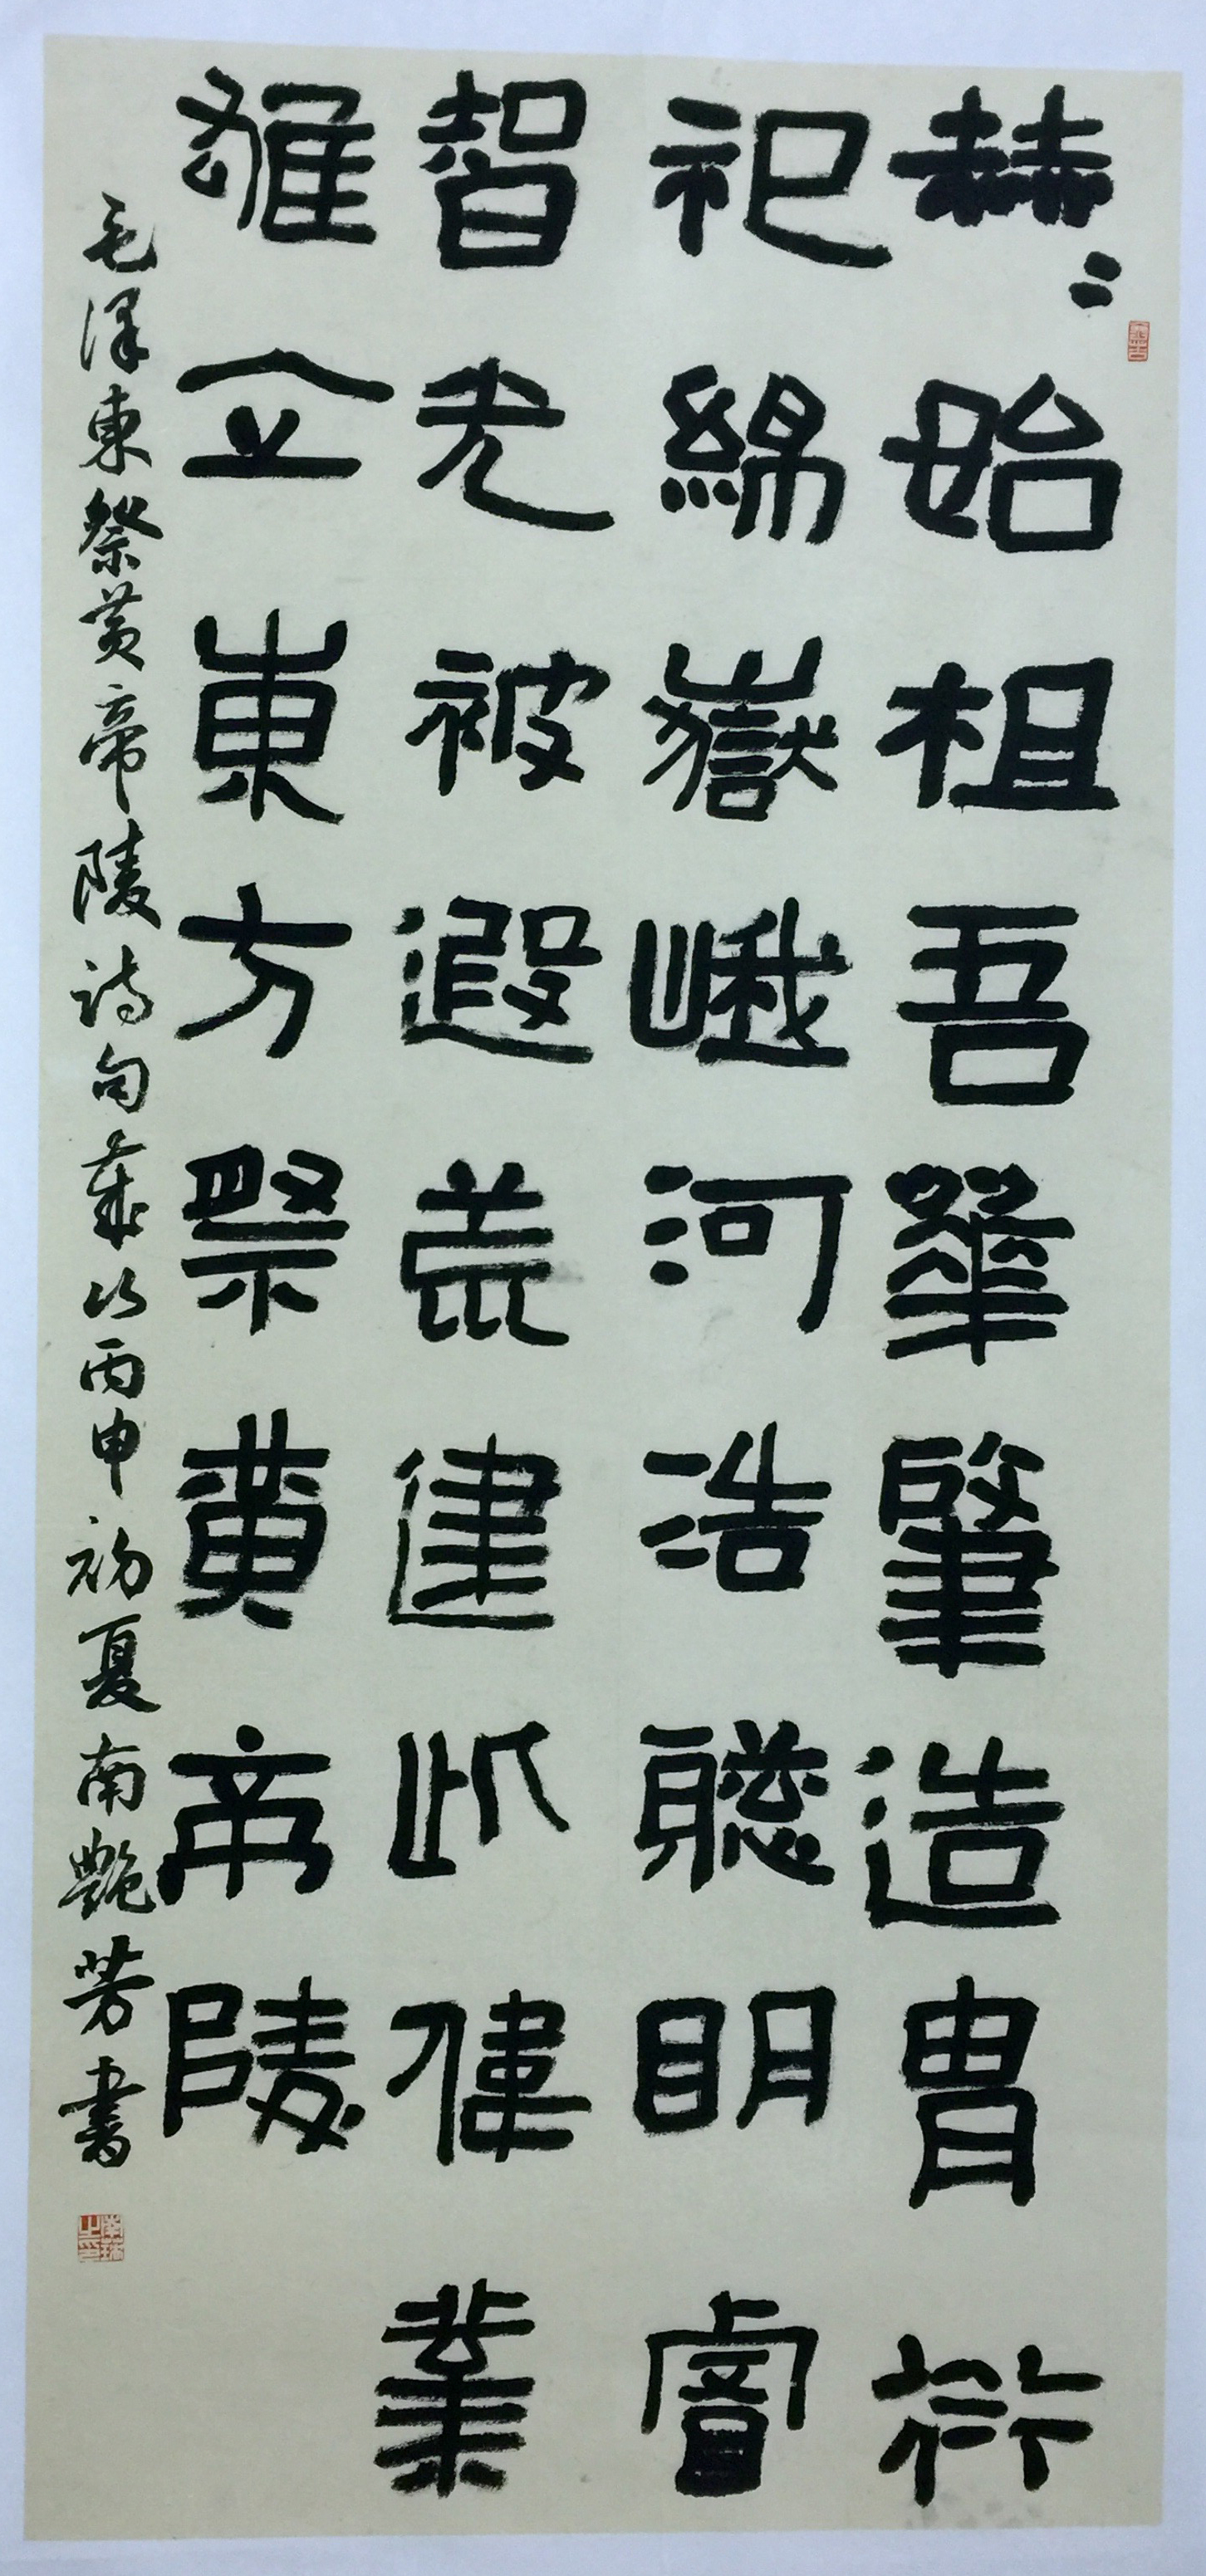 赫〻始祖吾華肇造胄衍
祀綿嶽峨河浩聰明睿
智光被遐荒建此偉業
雄立東方祭黄帝陵
毛澤東祭黄帝陵詩句歲次丙申初夏南艷芳書